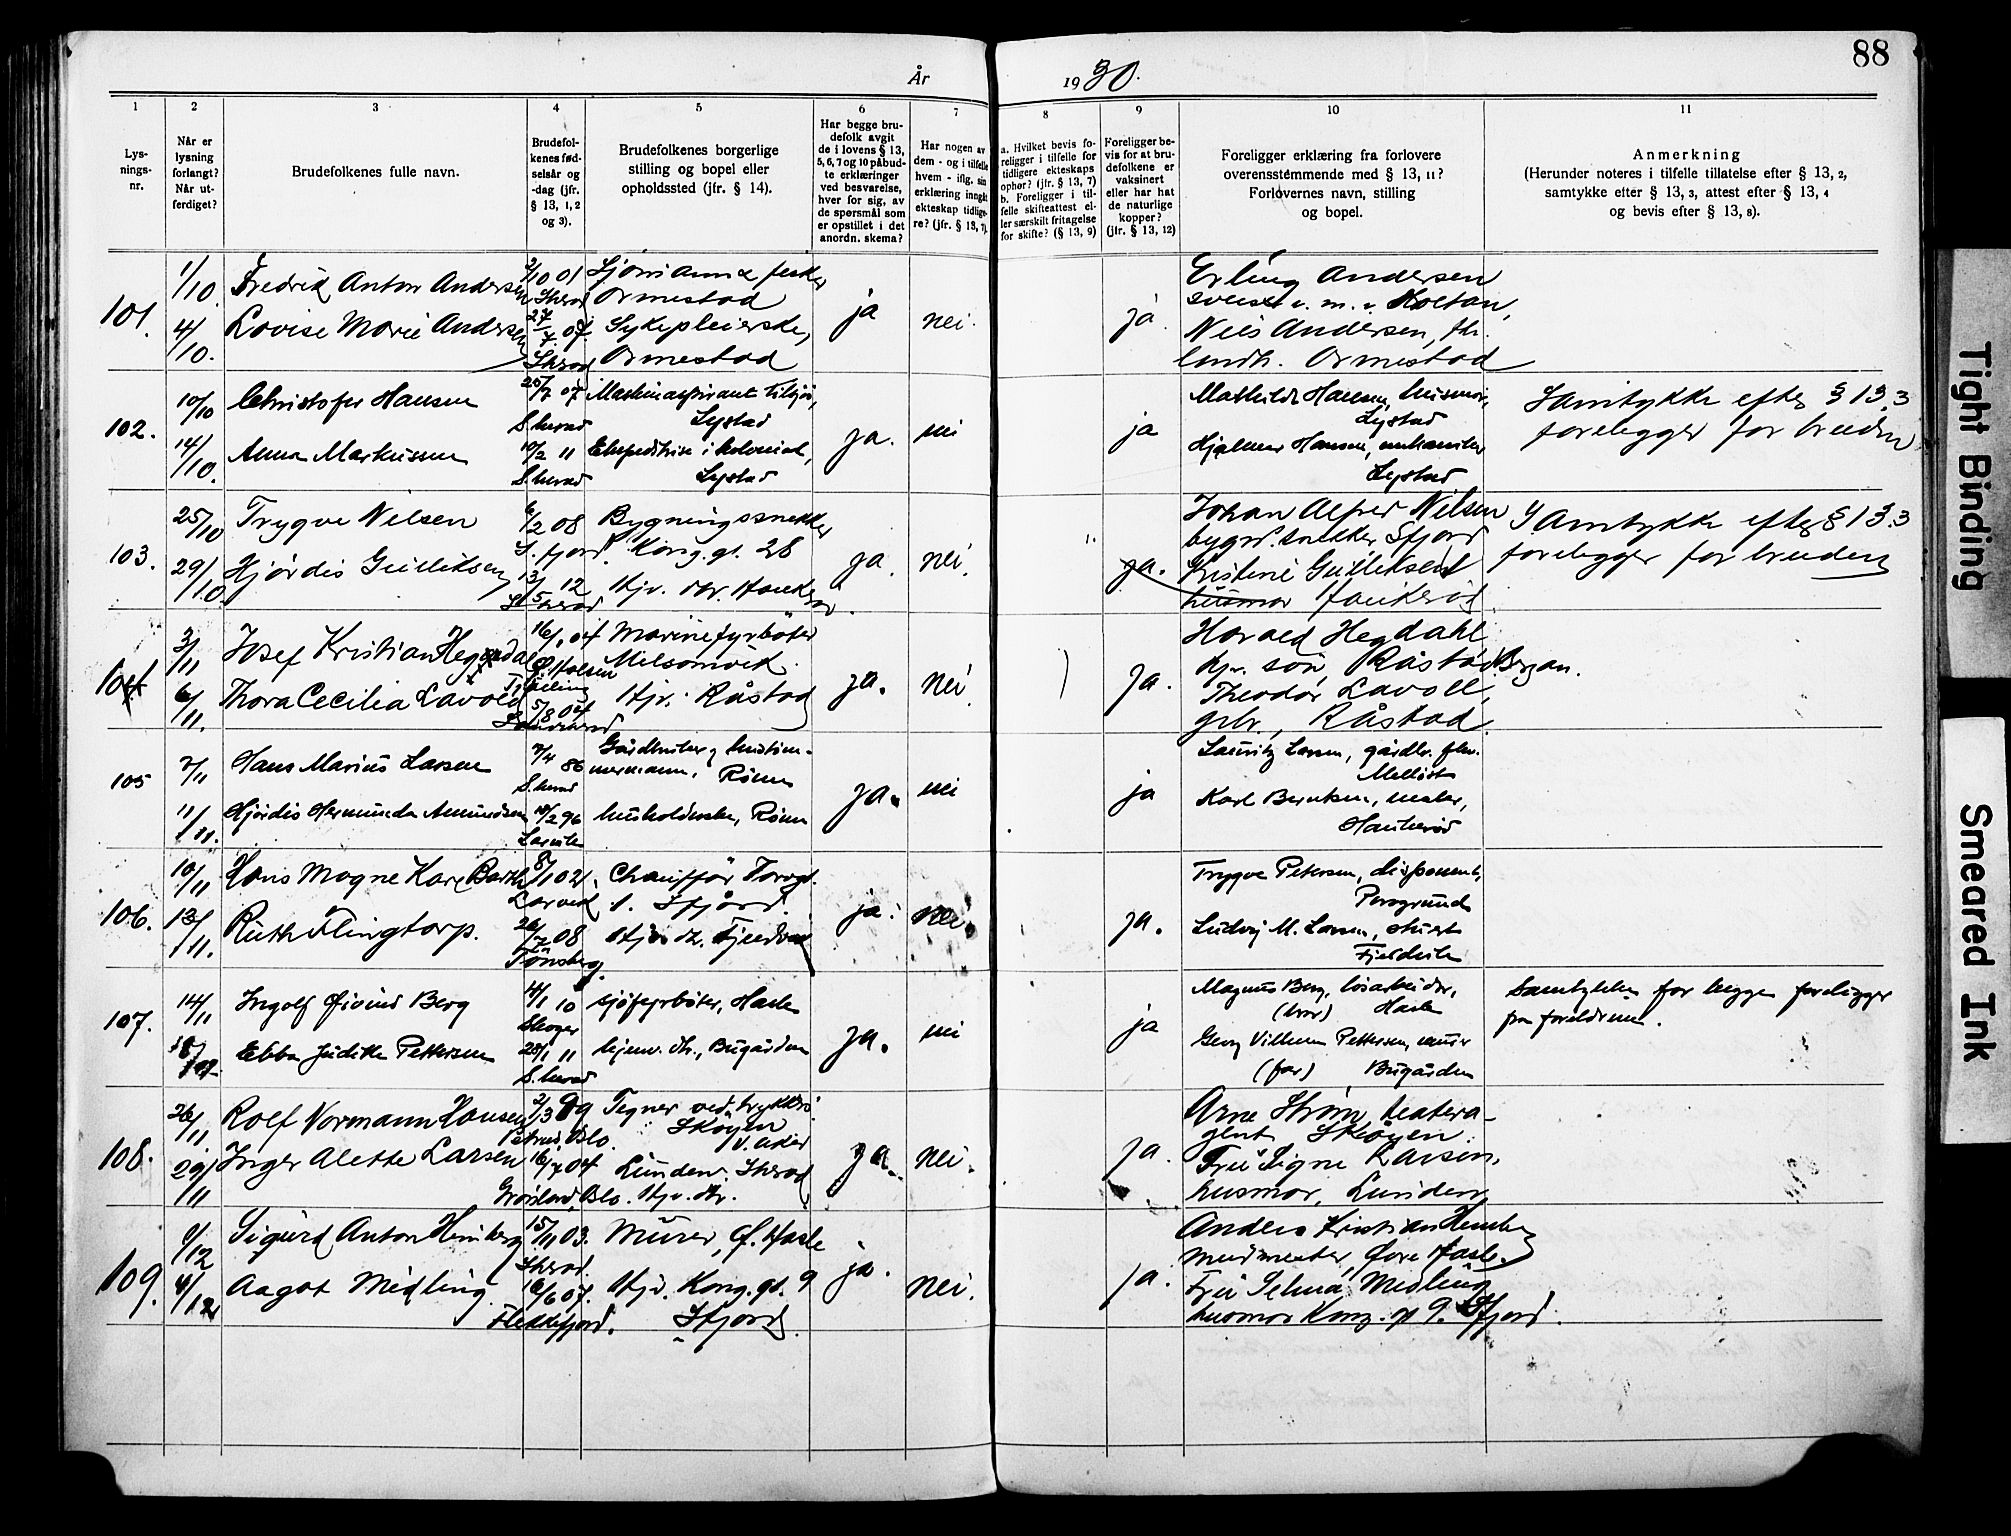 88
År 1930.
1
Lys-
nings-
nr.
2
Når er
lysning
forlangt?
Når ut-
ferdiget?
3
Brudefolkenes fulle navn.
4
Brudefol-
kenes fød-
selsår og
-dag (jfr.
§ 13, 1, 2
og 3).
5
Brudefolkenes borgerlige
stilling og bopel eller
opholdssted (jfr. § 14).
6
Har begge bru-
defolk avgit
de i lovens § 13,
5, 6, 7 og 10 påbud-
te erklæringer
ved besvarelse,
hver for sig, av
de spørsmål som
er opstillet i det
anordn. skema?
7
Har nogen av
dem - og i tilfelle
hvem - iflg. sin
erklæring inngått
ekteskap tidlige-
re? (jfr. § 13, 7).
8
a. Hvilket bevis fo-
religger i tilfelle for
tidligere ekteskaps
ophør? (jfr. § 13, 7)
b. Foreligger i til-
felle skifteattest el-
ler særskilt fritagelse
for skifte? (§ 13, 9)
9
Foreligger be-
vis for at bru-
defolkene er
vaksinert
eller har hat
de naturlige
kopper?
(jfr. § 13, 12)
10
Foreligger erklæring fra forlovere
overensstemmende med § 13, 11?
Forlovernes navn, stilling
og bopel.
11
Anmerkning
(Herunder noteres i tilfelle tillatelse efter § 13, 2,
samtykke efter § 13, 3, attest efter § 13, 4
og bevis efter § 13, 8).
101.
1/10.
4/10.
Fredrik Anton Andersen
Lovise Marie Andersen
2/10 01
Sherad
27/7. 07.
Sherad
Sjömann &
Ormestad
Sykepleierske,
Ormestad
ja
nei.
ja.
Erling Andersen
Nils Andersen, fh.
landh. Ormestad
102.
10/10
14/10.
Christofer Hansen
Anna Markussen
07
S.herad
10/2 11
S.herad
Maskinaspirant tilsjös,
Lystad
Ekspeditrise i kolonial,
Lystad
ja.
nei
ja
Mathilde Hansen, husmor,
Lystad
Hjalmar Hansen, mekaniker
Lystad
Samtykke efter § 13.3
forelegger for bruden
103.
25/10
29/10.
Trygve Nilsen
Hjördis Gulliksen
6/2 08
S.fjord.
13/5 12
Bygningssnekker
Kong. gt. 28
Hjv. dtr. Haukerød.
ja.
nei.
ja.
Johan Alfred Nilsen
bygn. snekker Sfjord
Kristine Gulliksen
husmor Haukerød.
Samtykke efter § 13.3
forelegger for bruden
104
3/11
6/11.
Josef Kristian Hegdal
Thora Cecilia Lavold
04
5/8 04
Sandeherad
Marinefyrböter
Melsomvik.
Hjv. Råstad
ja.
nei
ja.
Harald Hegdahl
Råstad. Bergan.
Theodor Lavoll,
gbr., Råstad.
105
7/11
11/11.
Hans Marius Larsen
Hjördis Hermunda Amundsen
7/4 86
S.herad
96
Larvik
Gårdbruker,
Rönn
husholderske, Rönn
ja.
nei
ja
Lauritz Larsen, gårdbr.
Karl Berntsen, maler,
Haukeröd
106.
10/11
13/11.
Hans Magne Karl Barth
Ruth Flingtorp.
02
Larvik
26/7 08
Tönsberg.
Chauffør Torvgt.
1. Sfjord.
ja.
nei.
ja.
Trygve Petersen, disponent,
Porsgrund
Ludvig M. Larsen,
107.
14/11
Ingolf Øivind Berg
Ebba Judith Pettersen
4/1 10
Skoger
11
S.herad
sjöfyrböter, Hasle
hjemv. dtr., Bugården
ja.
nei
ja
Magnus Berg, løsarbeider,
(bror) Hasle
Georg Vilhelm Pettersen, murer
(far) Bugården
Samtykke for begge foreligger
fra foreldrene.
108.
26/11
29/11
Rolf Normann Hansen
Inger Alette Larsen
2/3 99
16/7 04
Grönland, Oslo.
Tegner ved trykkeri
Sköyen
V. Aker
Lunden. Sherad
Hjv. dtr.
ja.
nei.
ja.
Arne Ström, teatera-
gent Sköyen.
Fru Signe Larsen,
husmor, Lunden
109.
1/12
4/12
Sigurd Anton Himberg
Aagot Midling
15/11 03.
Sherad.
16/6 07.
Flekkefjord.
Murer, Ø. Hasle
Hjv. Kong. gt. 9
Sfjord.
ja.
nei.
ja.
Anders Kristian Himberg
murmester, Øvre Hasle.
Fru Selma Midling
husmor Kong. gt 9. Sfjord.
Tight Binding
Smeared Ink